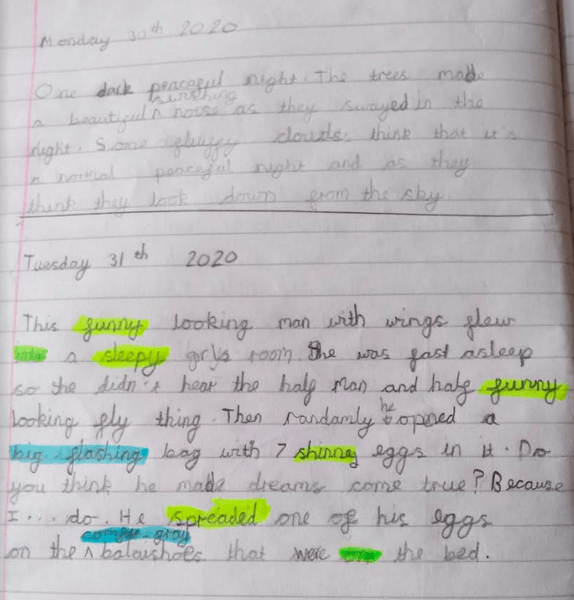 Monday 30th 2020
One dark peaceful night. The trees made
a beautiful ^ noise as they swayed in the
night. Some fluffy clouds, think that it's
a normal peaceful night and as they
think they look down from the sky
Tuesday 31th 2020
This funny looking man with wings flew
into a sleepy girls room. She was fast asleep
so she didn't hear the half man and half funny
looking fly thing. Then randamly he opened a
big flashing bag with 7 shinney eggs in it. Do
you think he made dreams come true? Because
I... do. He spreaded one of his eggs
on the ^ that were the bed.